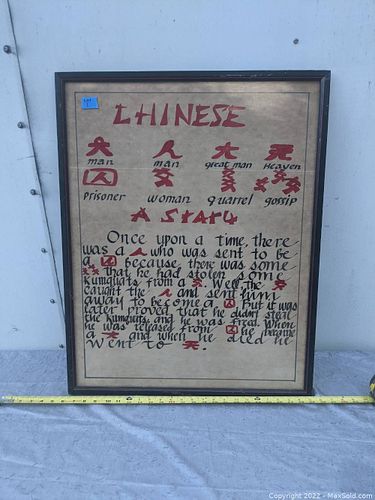 CHINESE
大 人 大 天
man man great man Heaven
囚 女 奻 姦
prisoner woman quarrel gossip
A Story
Once upon a time, there
was a 人 who was sent to be
a 囚 because there was some
奻 that he had stolen some
Kumquats from a 女. Well, the 女
caught the 人 and sent him
away to become a 囚. But it was
later proved that he didnt steal
the kumquats, and he was freed. When
he was released from 囚 he became
a 大 and when he died he
went to 天.
Copyright 2022 - MaxSold.com